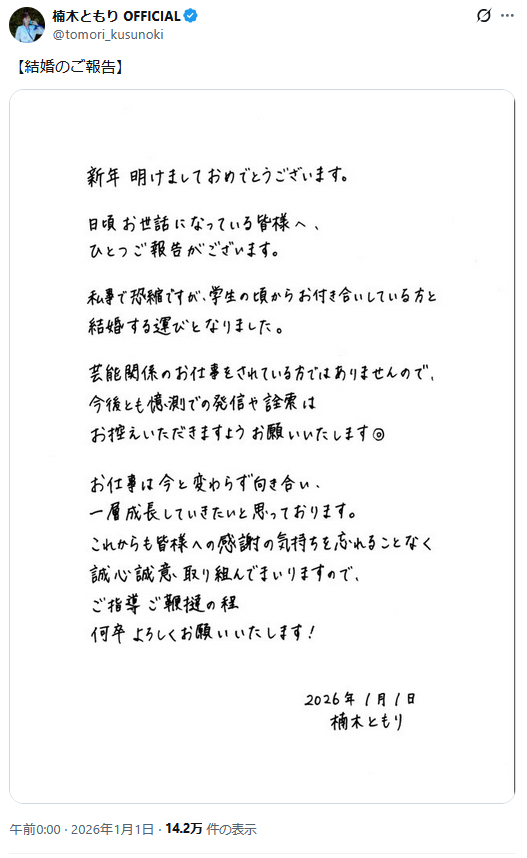 楠木ともり OFFICIAL
@tomori_kusunoki
【結婚のご報告】
新年 明けましておめでとうございます。
日頃 お世話になっている皆様へ、
ひとつご報告がございます。
私事で恐縮ですが、学生の頃からお付き合いしている方と
結婚する運びとなりました。
芸能関係のお仕事をされている方ではありませんので、
今後とも憶測での発信や詮索は
お控えいただきますようお願いいたします◎
お仕事は今と変わらず向き合い、
一層成長していきたいと思っております。
これからも皆様への感謝の気持ちを忘れることなく
誠心誠意、取り組んでまいりますので、
ご指導ご鞭撻の程
何卒よろしくお願いいたします!
2026年1月1日
楠木ともり
午前0:00 · 2026年1月1日 · 14.2万 件の表示